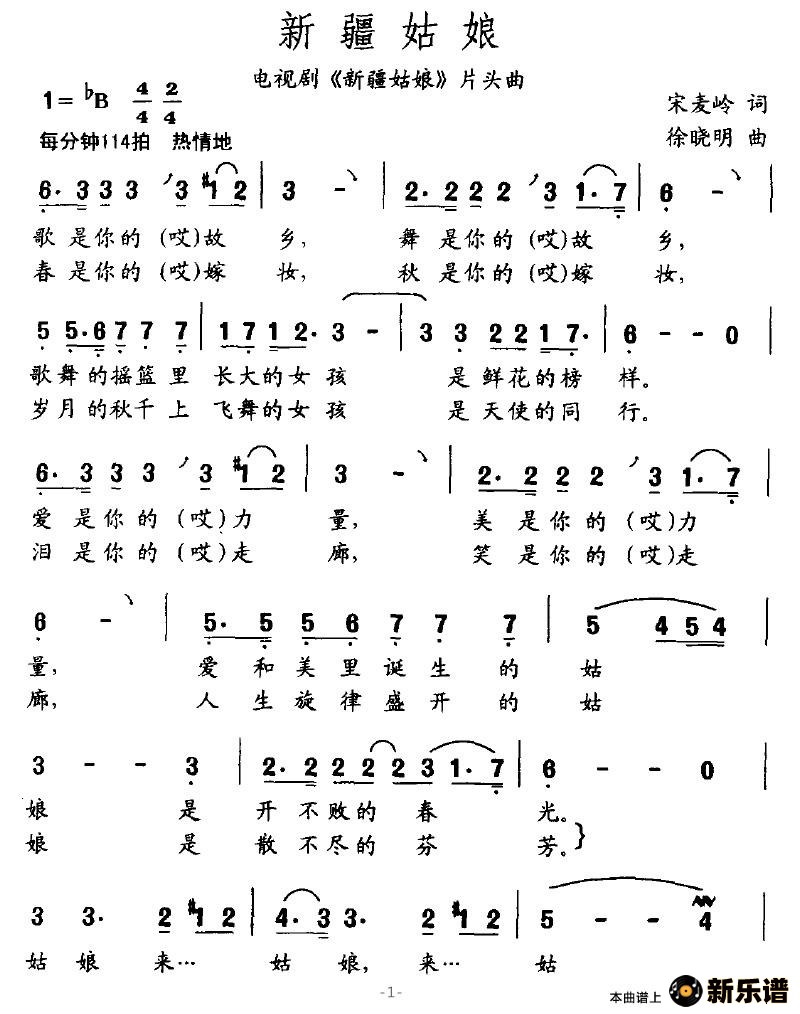 新疆姑娘
电视剧《新疆姑娘》片头曲
1=♭B 4/4 2/4
宋麦岭 词
每分钟114拍 热情地
徐晓明 曲
6· 3 3 3 3 #1 2 | 3 - | 2· 2 2 2 3 1· 7 | 6 - |
歌是你的(哎)故乡, 舞是你的(哎)故乡,
春是你的(哎)嫁妆, 秋是你的(哎)嫁妆,
5 5·6 7 7 7 | 1 7 1 2· 3 - | 3 3 2 2 1 7· | 6 - - 0 |
歌舞的摇篮里 长大的女孩 是鲜花的榜样。
岁月的秋千上 飞舞的女孩 是天使的同行。
6· 3 3 3 3 #1 2 | 3 - | 2· 2 2 2 3 1· 7 |
爱是你的(哎)力量, 美是你的(哎)力
泪是你的(哎)走廊, 笑是你的(哎)走
6 - | 5· 5 5 6 7 7 7 | 5 4 5 4 |
量, 爱和美里诞生的姑
廊, 人生旋律盛开的姑
3 - - 3 | 2· 2 2 2 2 3 1· 7 | 6 - - 0 |
娘 是开不败的春光。
娘 是散不尽的芬芳。
3 3· 2 #1 2 | 4· 3 3· 2 #1 2 | 5 - - 4 |
姑娘来… 姑娘,来… 姑
-1-
本曲谱上 新乐谱